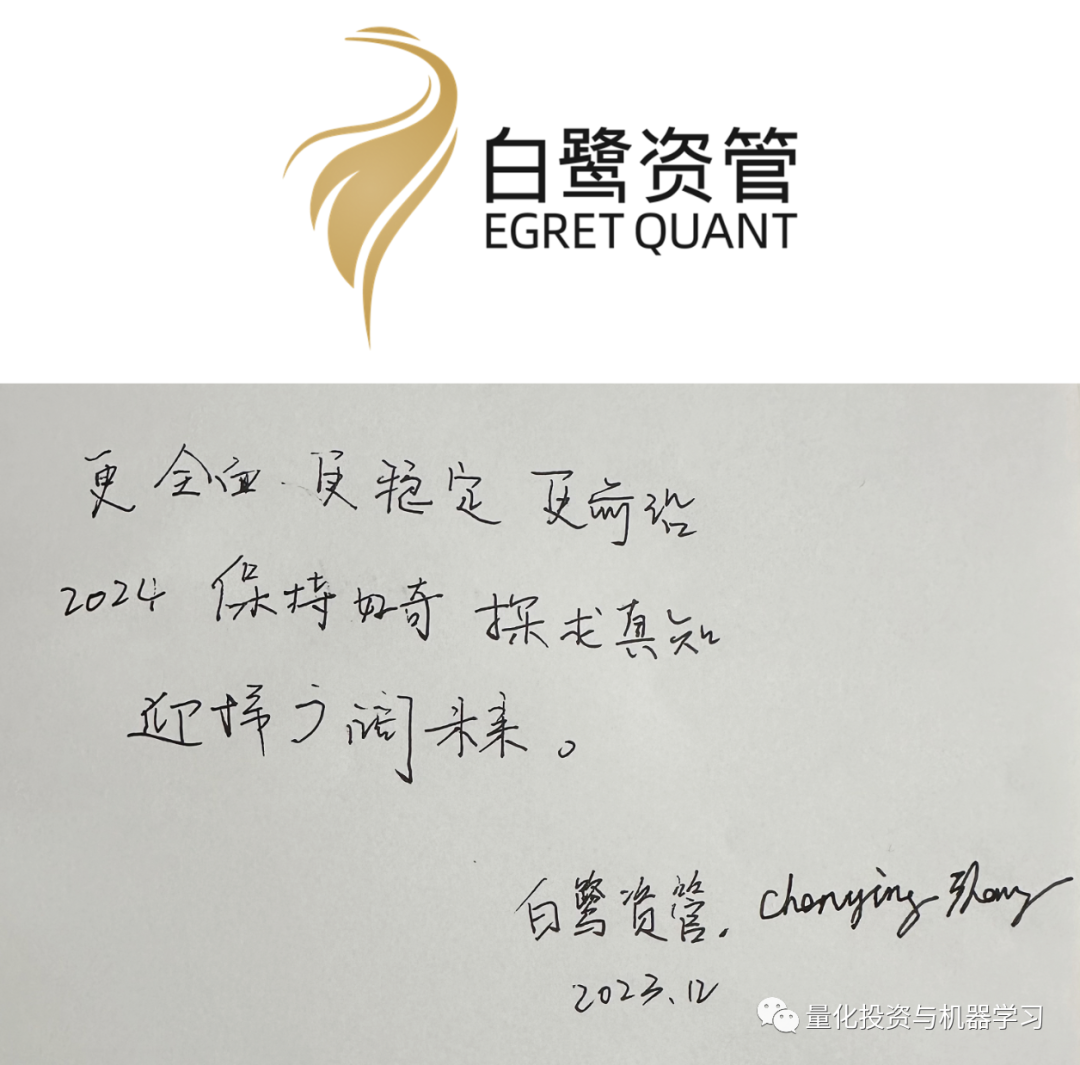 白鹭资管
EGRET QUANT
更全面 更稳定 更前沿
2024 保持好奇 探求真知
迎接广阔未来。
白鹭资管. Chenying Zhang
2023.12
量化投资与机器学习